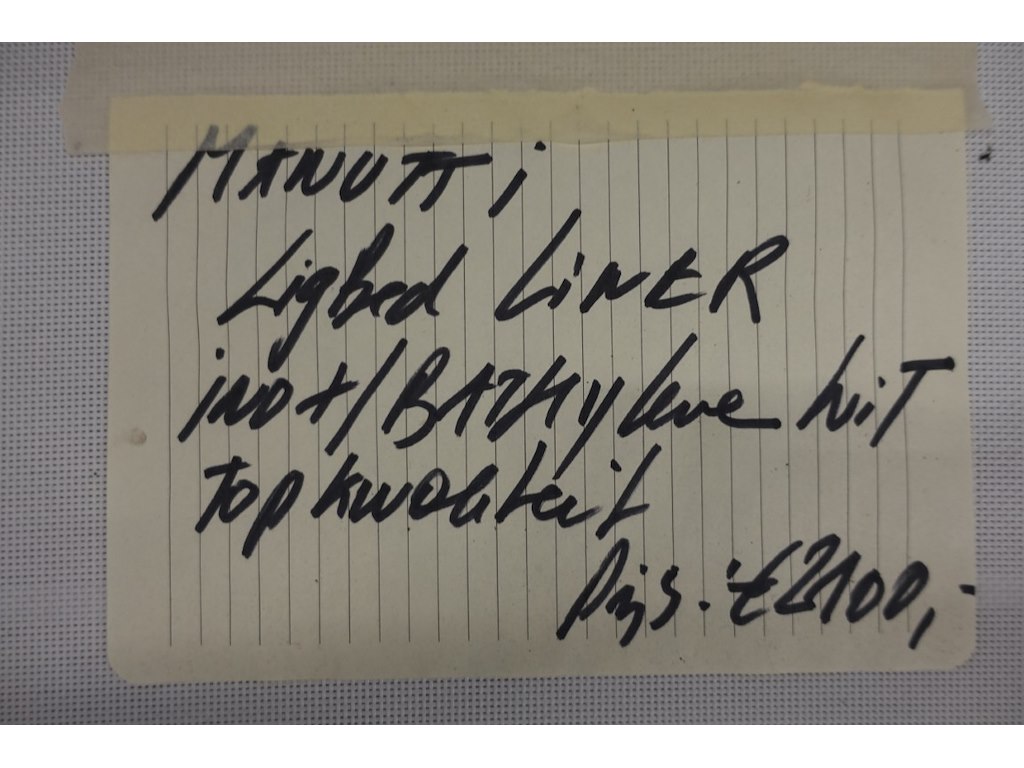 MANUTTi
Ligbed LiNER
iNOX/BATHYlene WiT
Top kwaliteit
Prijs: €2100,-